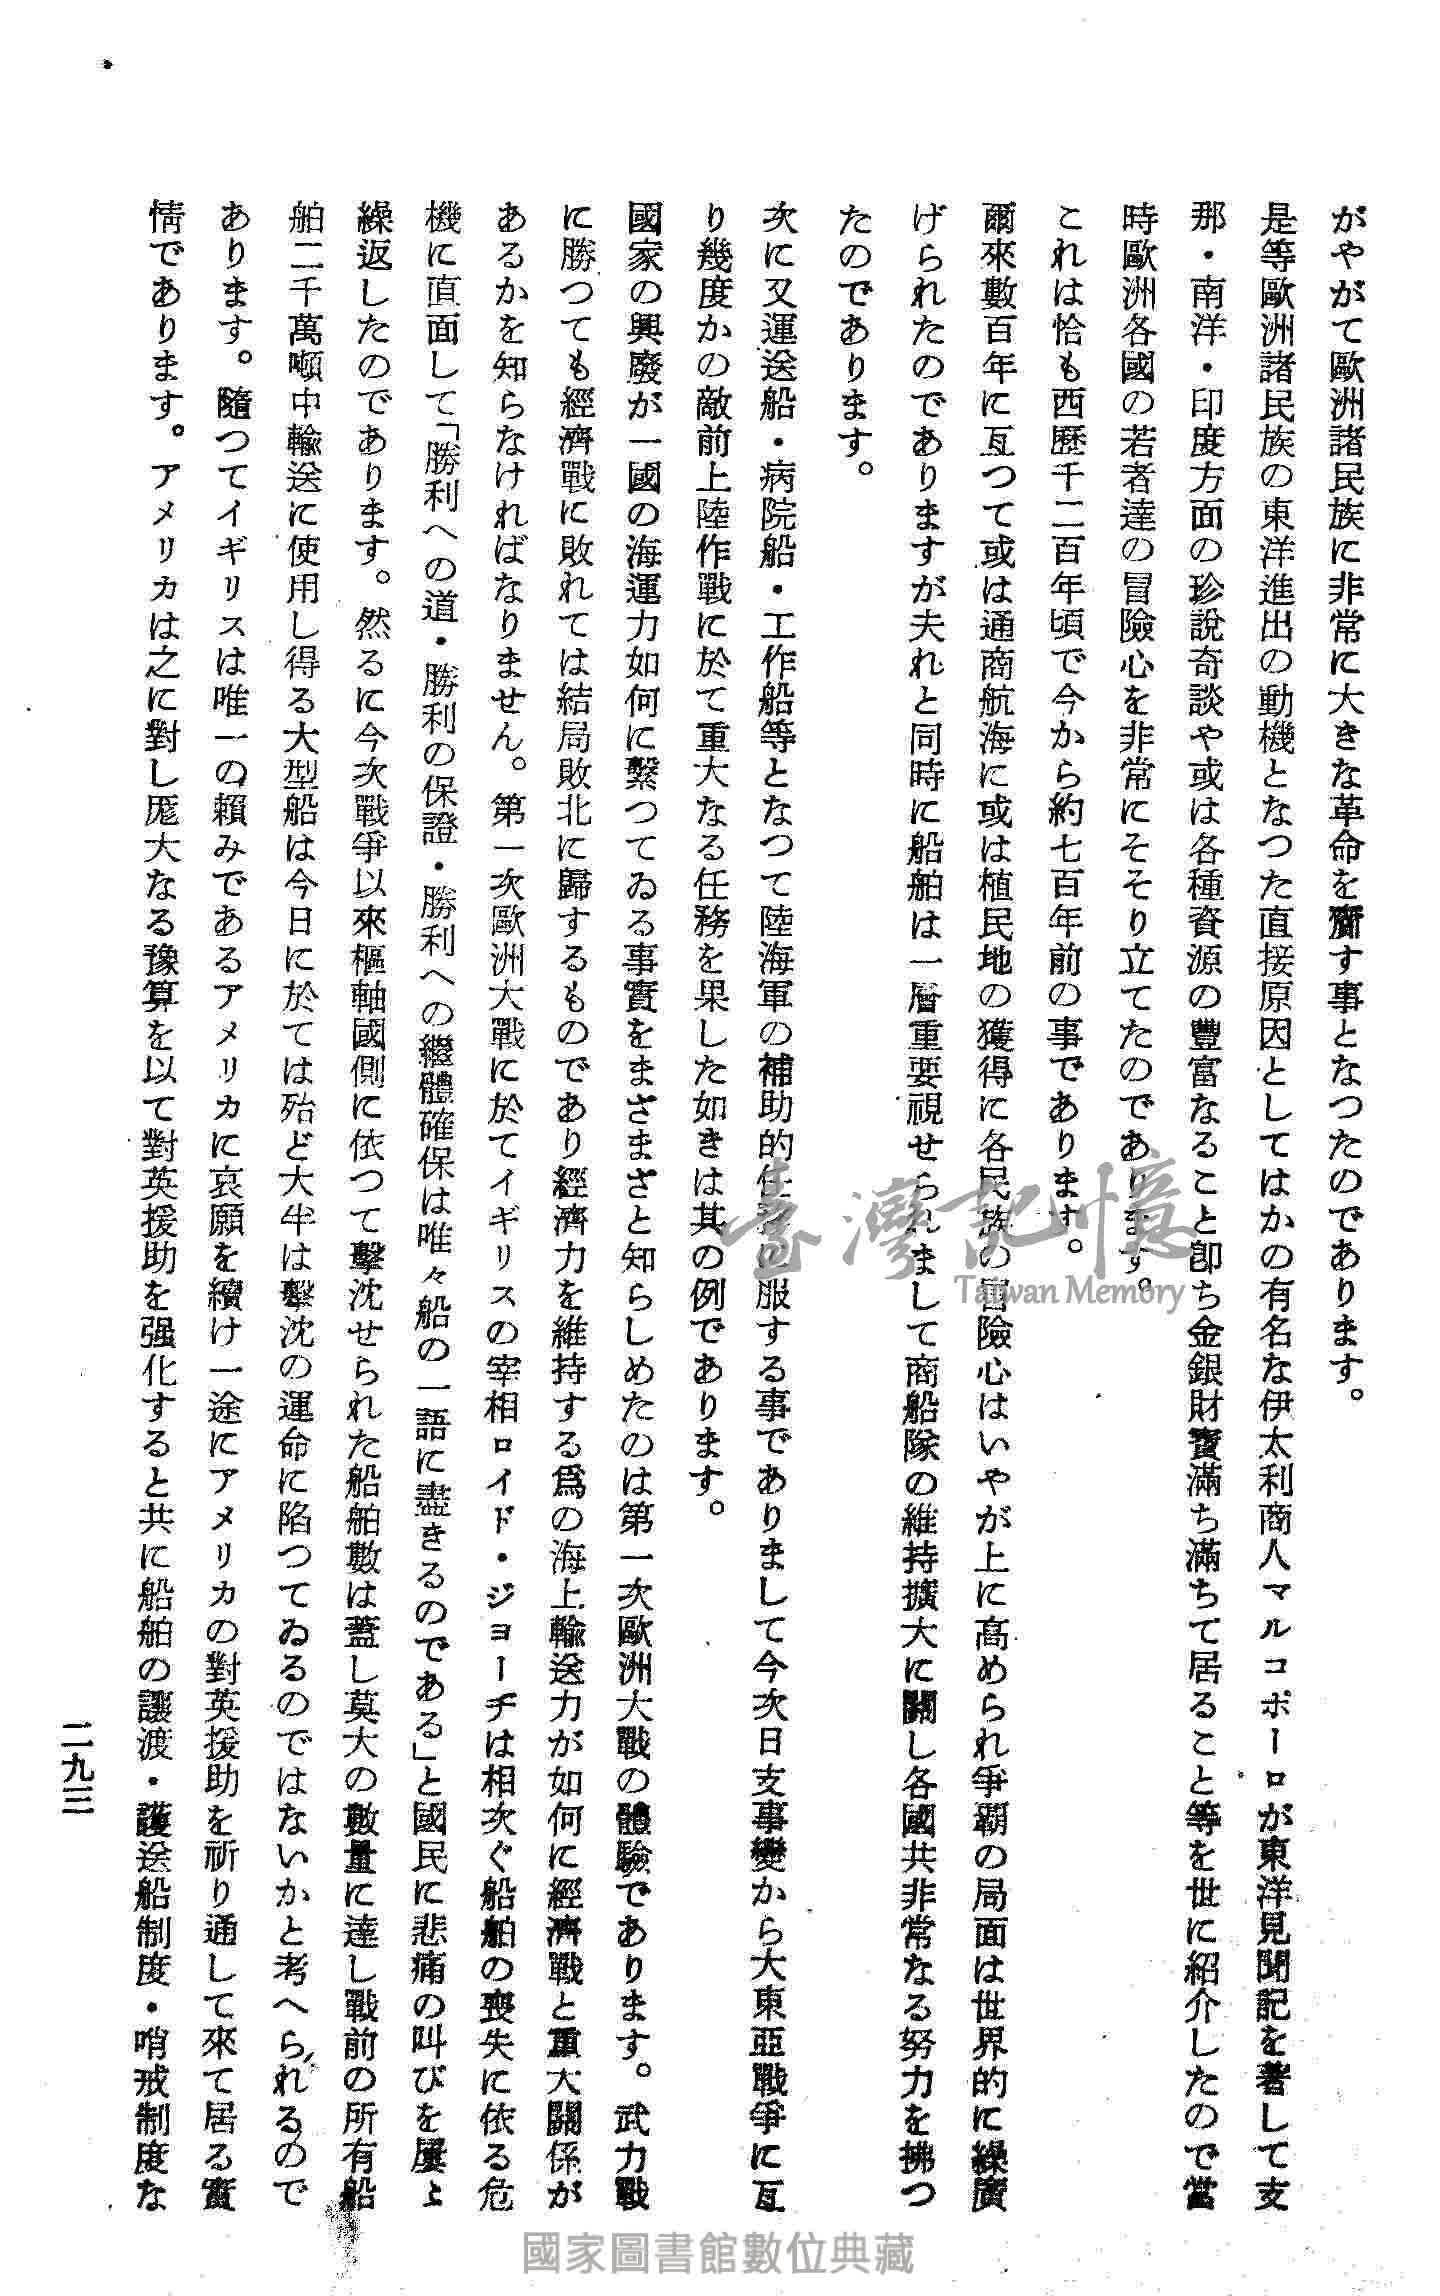 がやがて歐洲諸民族に非常に大きな革命を齎す事となつたのであります。
是等歐洲諸民族の東洋進出の動機となつた直接原因としてはかの有名な伊太利商人マルコポーロが東洋見聞記を著して支
那・南洋・印度方面の珍說奇談や或は各種資源の豐富なること卽ち金銀財寶滿ち滿ちて居ること等を世に紹介したので當
時歐洲各國の若者達の冒險心を非常にそそり立てたのであります。
これは恰も西曆千二百年頃で今から約七百年前の事であります。
爾來數百年に亙つて或は通商航海に或は植民地の獲得に各民族の冒險心はいやが上に高められ爭覇の局面は世界的に繰廣
げられたのでありますが夫れと同時に船舶は一層重要視せられまして商船隊の維持擴大に關し各國共非常なる努力を拂つ
たのであります。
次に又運送船・病院船・工作船等となつて陸海軍の補助的任務に服する事でありまして今次日支事變から大東亞戰爭に亙
り幾度かの敵前上陸作戰に於て重大なる任務を果した如きは其の例であります。
國家の興廢が一國の海運力如何に繫つてゐる事實をまざまざと知らしめたのは第一次歐洲大戰の體驗であります。武力戰
に勝つても經濟戰に敗れては結局敗北に歸するものであり經濟力を維持する爲の海上輸送力が如何に經濟戰と重大關係が
あるかを知らなければなりません。第一次歐洲大戰に於てイギリスの宰相ロイド・ジョーヂは相次ぐ船舶の喪失に依る危
機に直面して「勝利への道・勝利の保證・勝利への繼體確保は唯々船の一語に盡きるのである」と國民に悲痛の叫びを屢〻
繰返したのであります。然るに今次戰爭以來樞軸國側に依つて擊沈せられた船舶數は蓋し莫大の數量に達し戰前の所有船
舶二千萬噸中輸送に使用し得る大型船は今日に於ては殆ど大半は擊沈の運命に陷つてゐるのではないかと考へられるので
あります。隨つてイギリスは唯一の賴みであるアメリカに哀願を續け一途にアメリカの對英援助を祈り通して來て居る實
情であります。アメリカは之に對し厖大なる豫算を以て對英援助を强化すると共に船舶の讓渡・護送船制度・哨戒制度な
二九三
臺灣記憶
Taiwan Memory
國家圖書館數位典藏